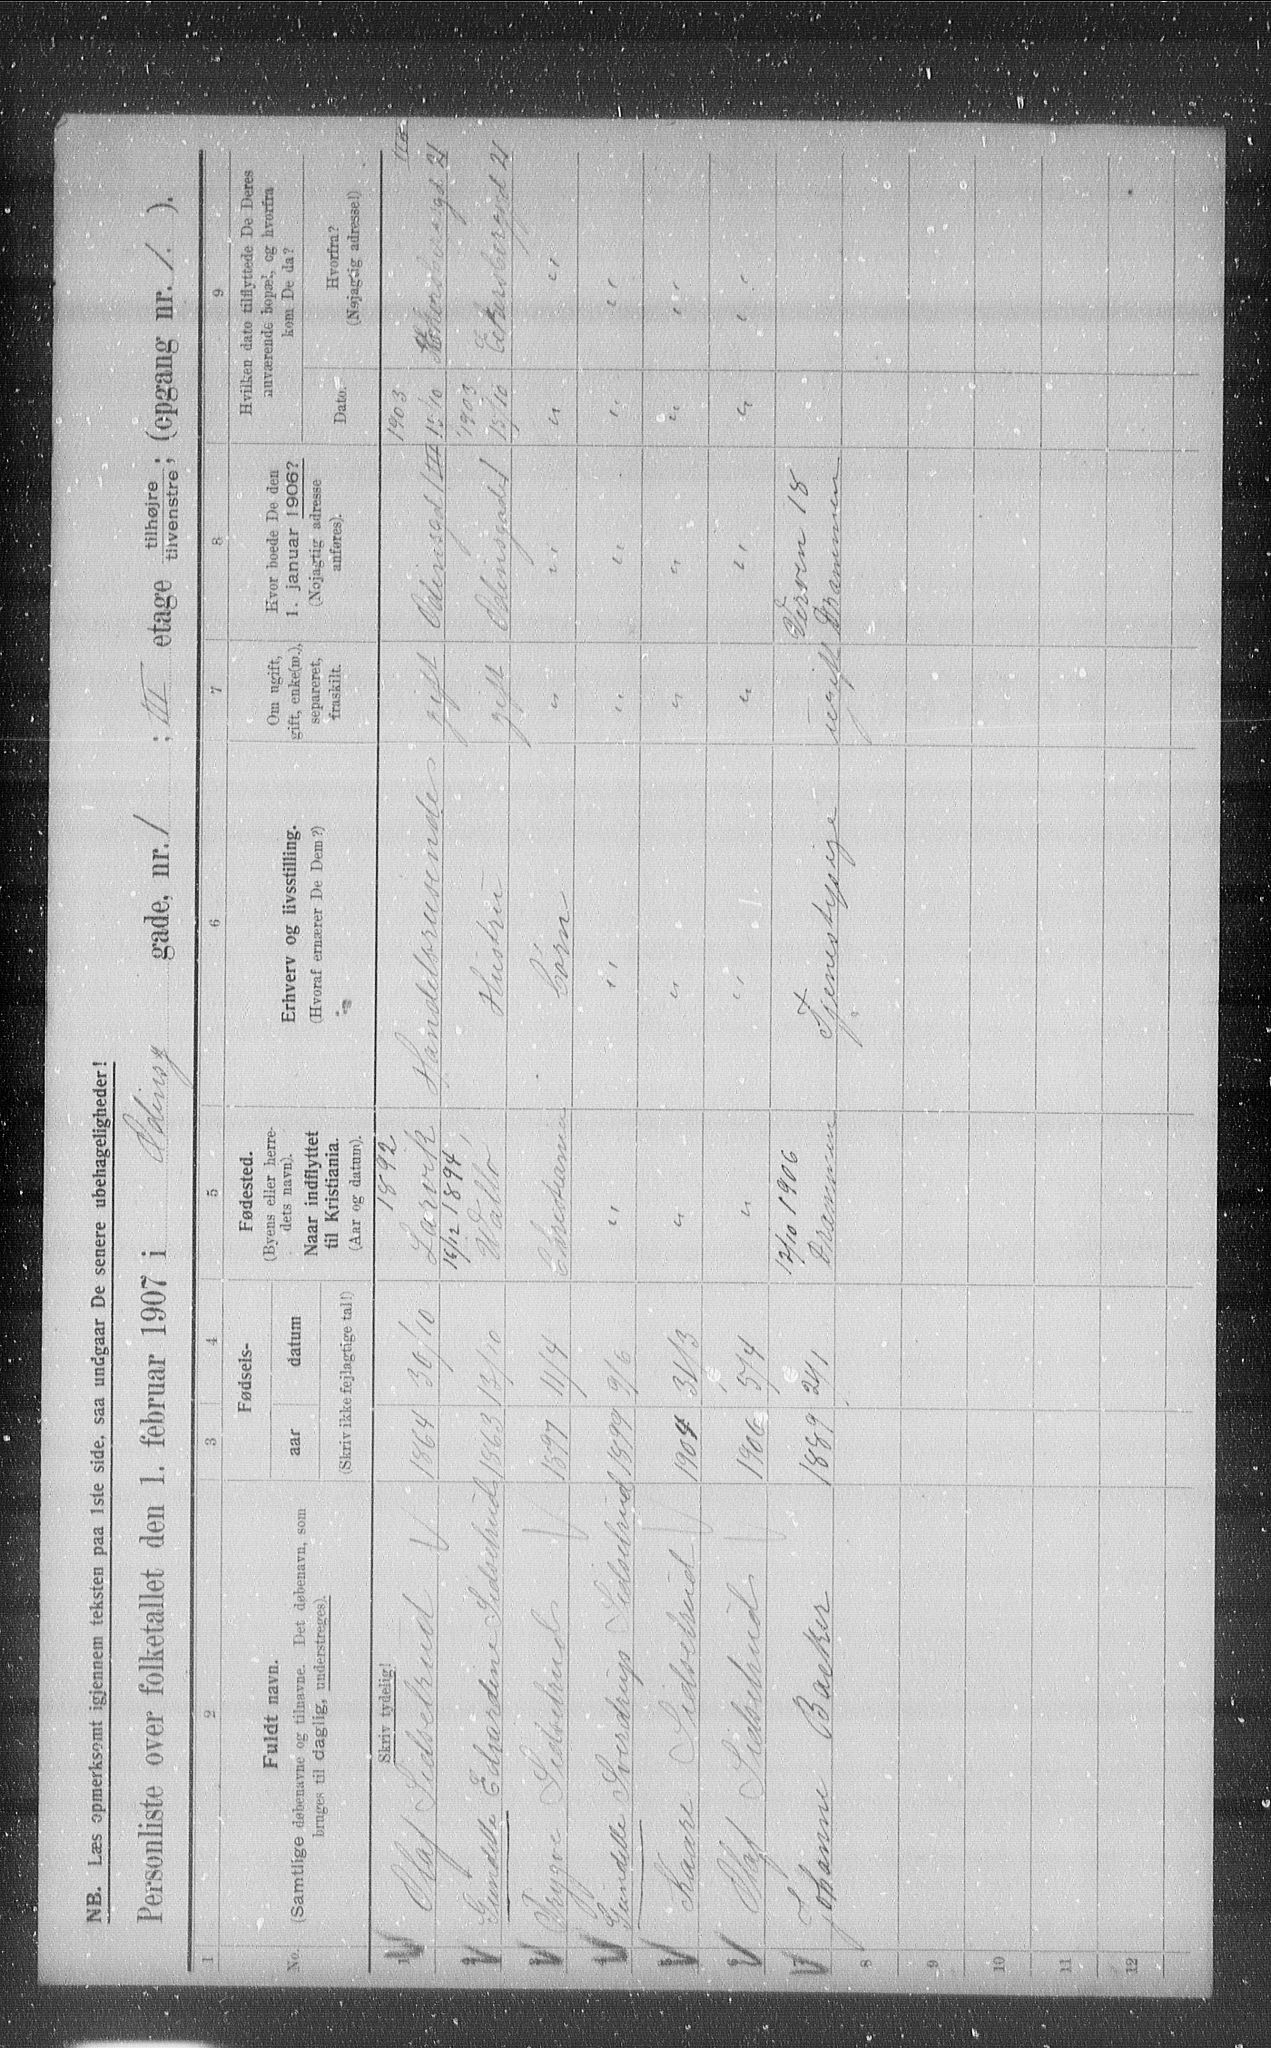 NB. Læs opmerksomt igjennem teksten paa 1ste side, saa undgaar De senere ubehageligheder!
Personliste over folketallet den 1. februar 1907 i Odinsg gade, nr. 1 ; III etage tilhøjre tilvenstre ; (opgang nr. 1. ).
1 2 3 4 5 6 7 8 9
No.
Fuldt navn.
(Samtlige døbenavne og tilnavne. Det døbenavn, som
bruges til daglig, understreges).
Fødsels-
aar datum
(Skriv ikke fejlagtige tal!)
Fødested.
(Byens eller herre-
dets navn).
Naar indflyttet
til Kristiania.
(Aar og datum).
Erhverv og livsstilling.
(Hvoraf ernærer De Dem?)
Om ugift,
gift, enke(m.),
separeret,
fraskilt.
Hvor boede De den
1. januar 1906?
(Nøjagtig adresse
anføres).
Hvilken dato tilflyttede De Deres
nuværende bopæl, og hvorfra
kom De da?
Dato.
Hvorfra?
(Nøjagtig adresse!)
Skriv tydelig!
1892 1903
1 Olaf Sidselrud 1864 30/10 Larvik Handelsreisende gift Odinsgd 1 III 15/10 21
16/12 1894 1903
Gundelle Edvardine Sidselrud 1863 13/10 Hustru gift Odinsgade 1 15/10 Eckersbergsgd 21
Trygve Sidselrud 1897 11/4 Christiania börn " " " "
Gundelle Sverdrup Sidselrud 1899 9/6 " " " " " "
Kaare Sidselrud 1904 31/3 " " " " " "
Olaf Sidselrud 1906 5/4 " " " " " "
12/10 1906 Verven 18
Johanne Baaker 1889 24/1 Drammen Tjenestepige ugift Drammen
8
9
10
11
12